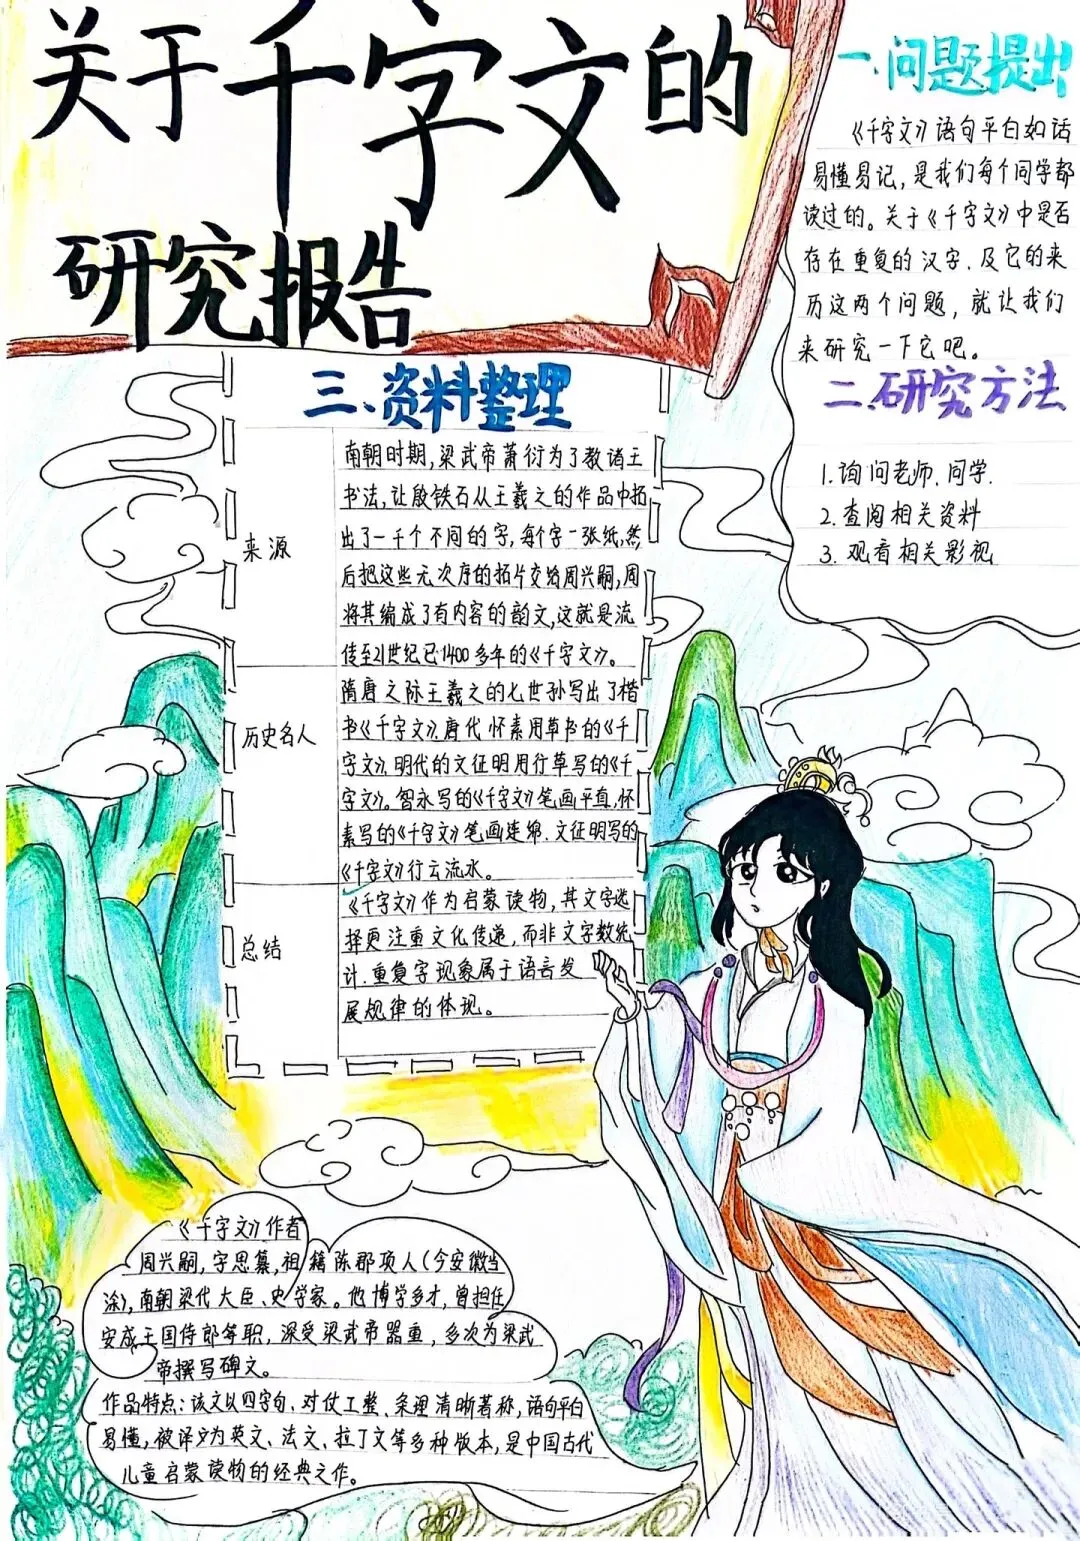 关于千字文的
研究报告
一、问题提出
《千字文》语句平白如话
易懂易记,是我们每个同学都
读过的。关于《千字文》中是否
存在重复的汉字、及它的来
历这两个问题,就让我们
来研究一下它吧。
二、研究方法
1.询问老师、同学.
2.查阅相关资料
3.观看相关影视
三、资料整理
来源
南朝时期,梁武帝萧衍为了教诸王
书法,让殷铁石从王羲之的作品中拓
出了一千个不同的字,每个字一张纸,然
后把这些无次序的拓片交给周兴嗣,周
将其编成了有内容的韵文,这就是流
传至21世纪已1400多年的《千字文》。
历史名人
隋唐之际王羲之的七世孙写出了楷
书《千字文》,唐代怀素用草书的《千
字文》,明代的文征明用行草写的《千
字文》。智永写的《千字文》笔画平直,怀
素写的《千字文》笔画连绵、文征明写的
《千字文》行云流水。
总结
《千字文》作为启蒙读物,其文字选
择更注重文化传递,而非文字数统
计.重复字现象属于语言发
展规律的体现。
《千字文》作者
周兴嗣,字思纂,祖籍陈郡项人(今安徽当
涂),南朝梁代大臣、史学家。他博学多才,曾担任
安成王国侍郎等职,深受梁武帝器重,多次为梁武
帝撰写碑文。
作品特点:该文以四字句、对仗工整、条理清晰著称,语句平白
易懂,被译为英文、法文、拉丁文等多种版本,是中国古代
儿童启蒙读物的经典之作。